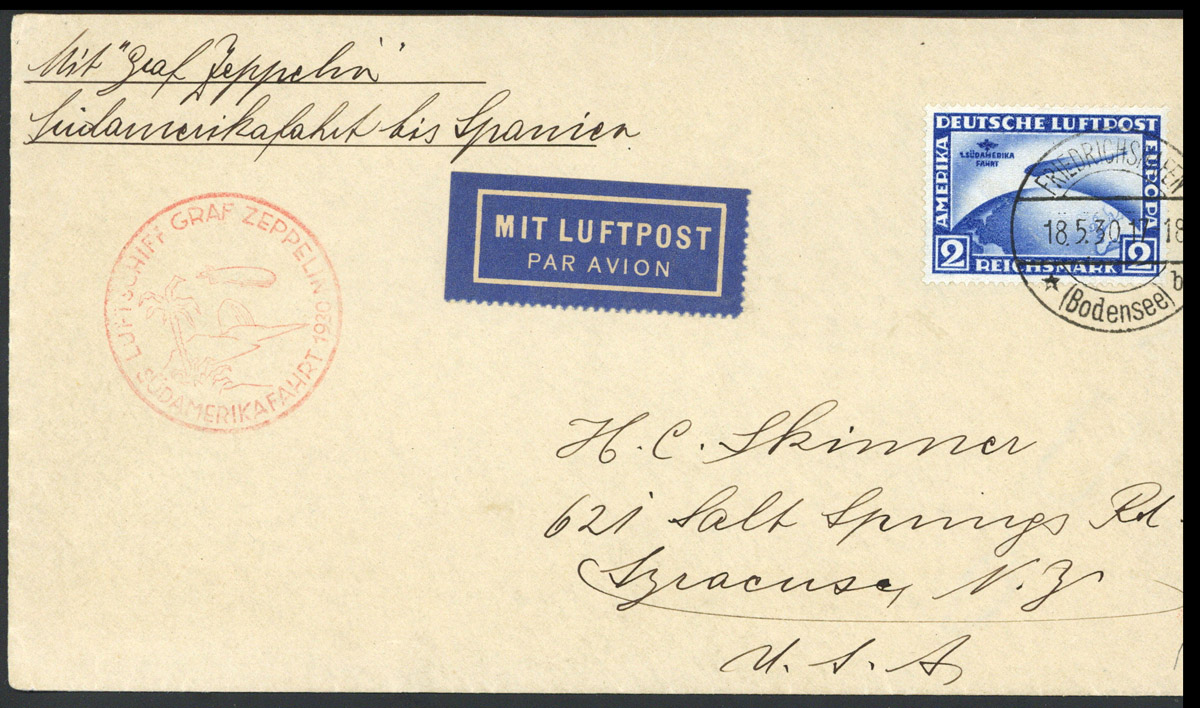 Mit "Graf Zeppelin"
Südamerikafahrt bis Spanien
DEUTSCHE LUFTPOST
AMERIKA
EUROPA
1. SÜDAMERIKA
FAHRT
2 REICHSMARK 2
FRIEDRICHSHAFEN
18.5.30.17-18
b
(Bodensee)
MIT LUFTPOST
PAR AVION
LUFTSCHIFF GRAF ZEPPELIN
SÜDAMERIKAFAHRT 1930
H. C. Skinner
621 Salt Springs Rd.
Syracuse, N.Y.
U. S. A